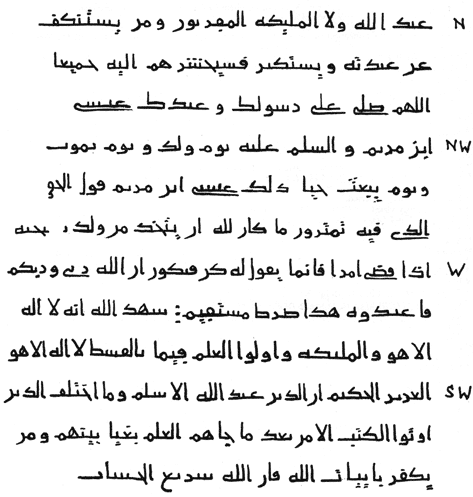 عبد الله ولا المليكه المقربون ومن يستنكف N
عن عبدته ويستكبر فسيحشرهم اليه جميعا
اللهم صلى على رسولك وعبدك عيسى
ابن مريم والسلم عليه يوم ولد ويوم يموت NW
ويوم يبعث حيا ذلك عيسى ابن مريم قول الحق
الذي فيه تمترون ما كان لله ان يتخذ من ولد سبحنه
اذا قضى امرا فانما يقول له كن فيكون ان الله ربي وربكم W
فاعبدوه هذا صرط مستقيم: شهد الله انه لا اله
الا هو والمليكه واولوا العلم قيما بالقسط لا اله الا هو
العزيز الحكيم ان الدين عند الله الاسلم وما اختلف الذين SW
اوتوا الكتب الا من بعد ما جاهم العلم بغيا بينهم ومن
يكفر باييات الله فان الله سريع الحساب